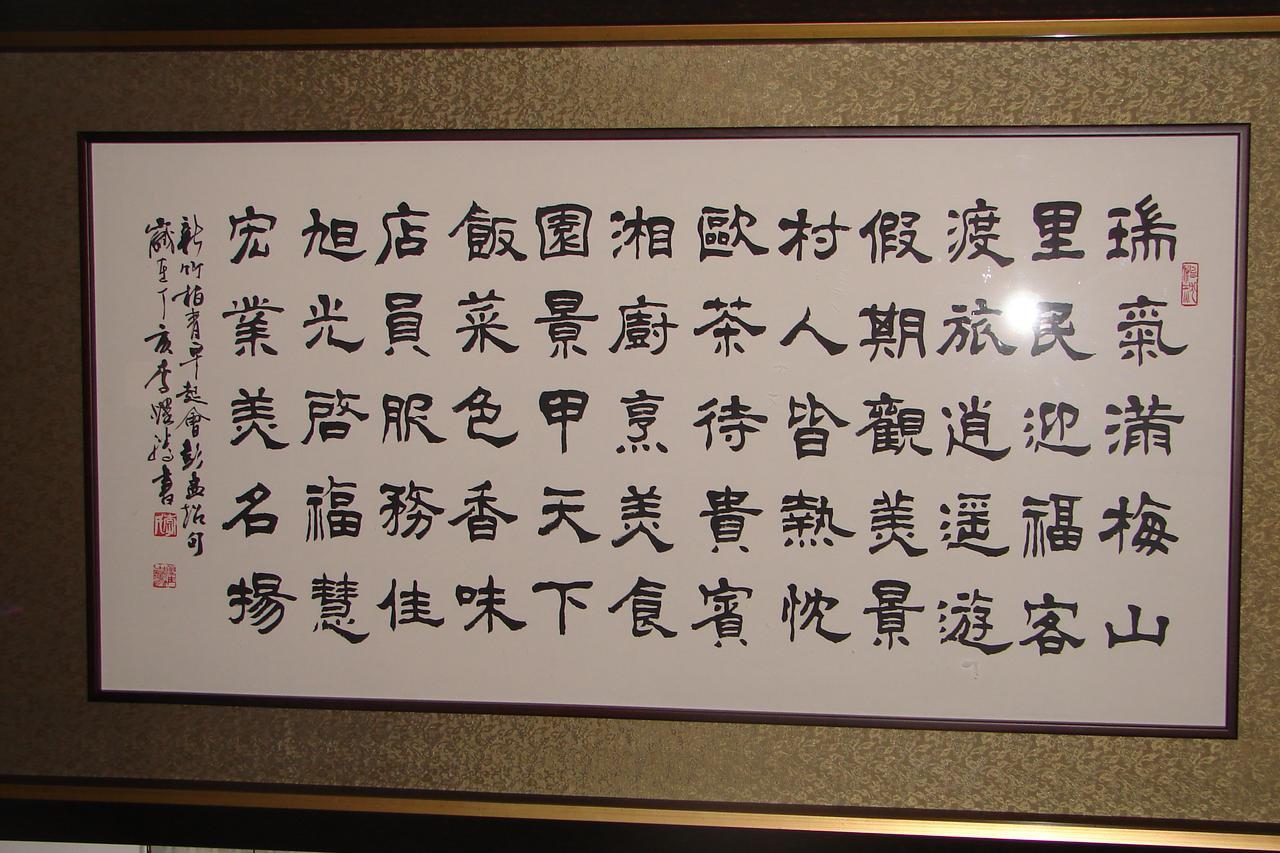 瑞氣滿梅山
里民迎福客
渡旅逍遥遊
假期觀美景
村人皆熱忱
歐茶待貴賓
湘廚烹美食
園景甲天下
飯菜色香味
店員服務佳
旭光啓福慧
宏業美名揚
新竹柏青早起會彭孟炤句
歲在丁亥李耀鴻書